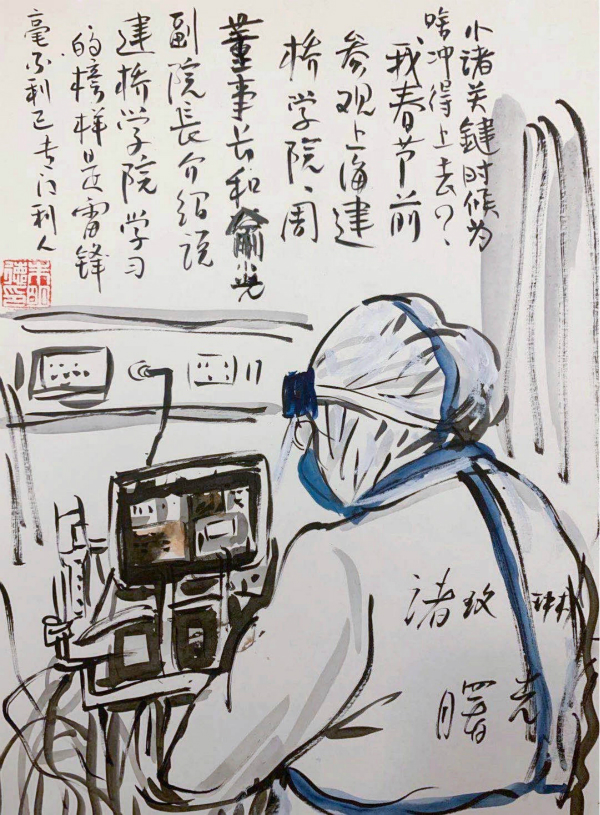 小诸关键时候为
啥冲得上去？
我春节前
参观上海建
桥学院、周
董事长和俞光
副院長介紹说
建桥学院学习
的榜样是雷锋
毫不利己专门利人
诸玫琳
曙光